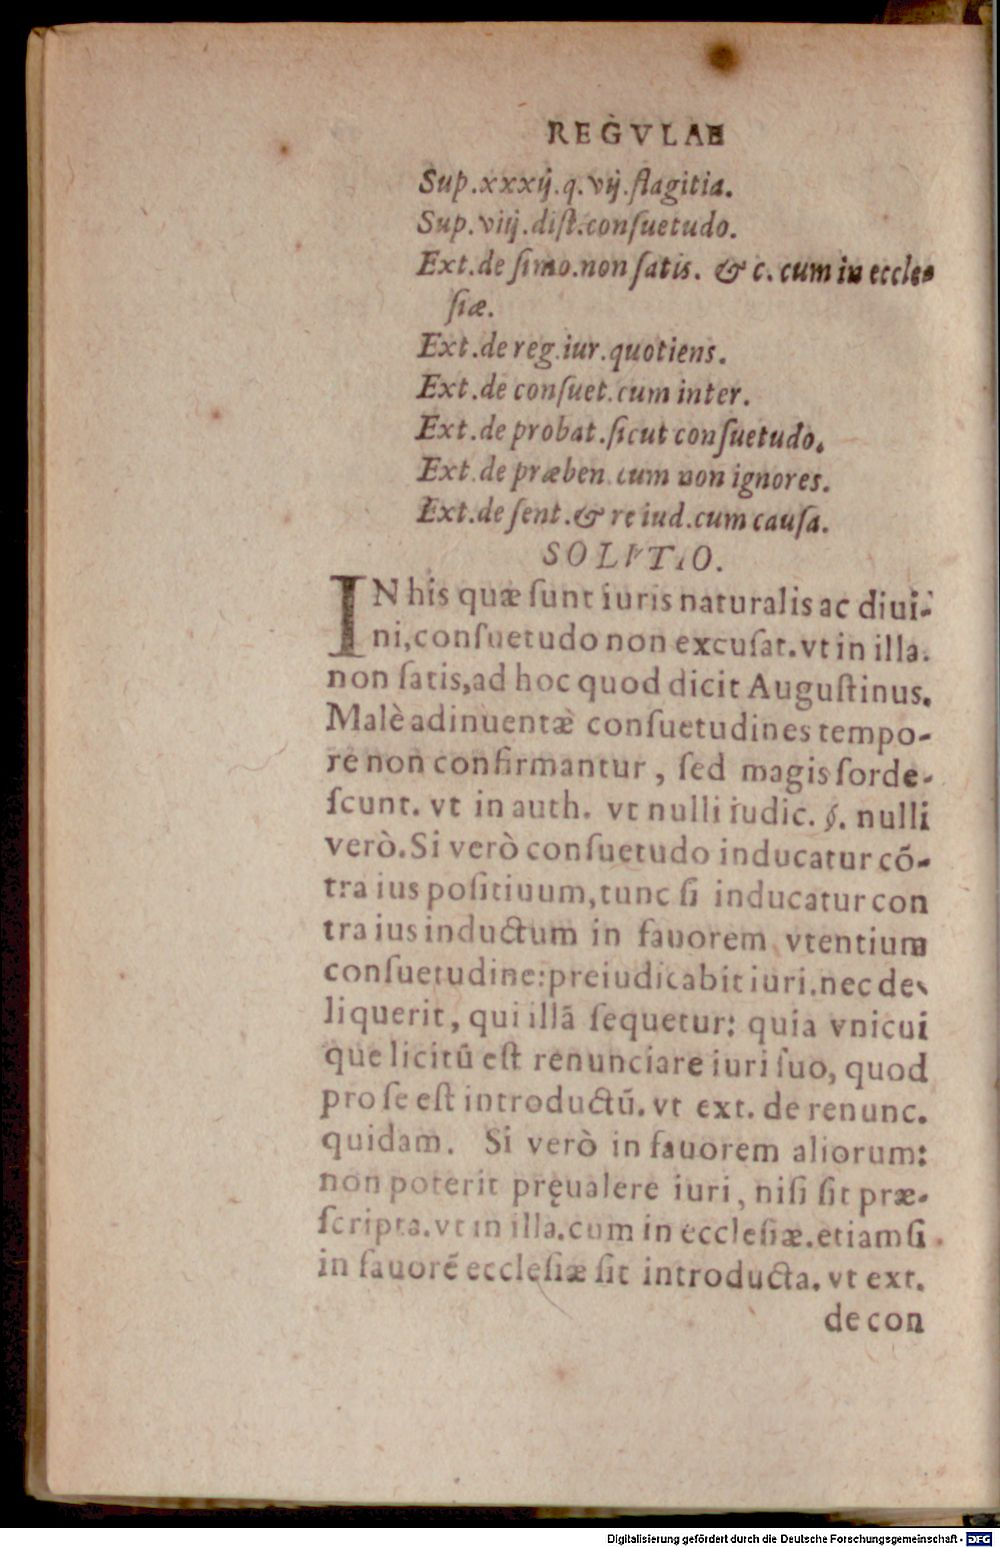 REGVLAE
Sup.xxxij.q.vij.flagitia.
Sup.viij.diſt.conſuetudo.
Ext.de ſimo.non ſatis. & c. cum in eccle-
ſiæ.
Ext.de reg.iur.quotiens.
Ext.de conſuet.cum inter.
Ext.de probat.ſicut conſuetudo.
Ext.de præben.cum non ignores.
Ext.de ſent.& re iud.cum cauſa.
SOLVTIO.
IN his quæ ſunt iuris naturalis ac diui-
ni,conſuetudo non excuſat.vt in illa.
non ſatis,ad hoc quod dicit Auguſtinus.
Malè adinuentæ conſuetudines tempo-
re non confirmantur, ſed magis ſorde-
ſcunt. vt in auth. vt nulli iudic. §. nulli
verò.Si verò conſuetudo inducatur cō-
tra ius poſitiuum,tunc ſi inducatur con
tra ius inductum in fauorem vtentium
conſuetudine:preiudicabit iuri.nec de-
liquerit, qui illā ſequetur: quia vnicui
que licitū eſt renunciare iuri ſuo, quod
pro ſe eſt introductū.vt ext. de renunc.
quidam. Si verò in fauorem aliorum:
non poterit pręualere iuri, niſi ſit præ-
ſcripta.vt in illa.cum in eccleſiæ.etiamſi
in fauorē eccleſiæ ſit introducta.vt ext.
de con
Digitalisierung gefördert durch die Deutsche Forschungsgemeinschaft - DFG